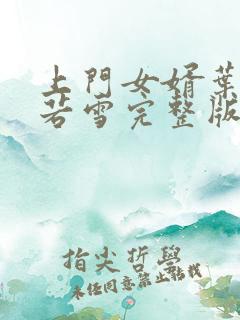 上門女婿葉
若雪完整版
指尖哲學
未经同意禁止转载